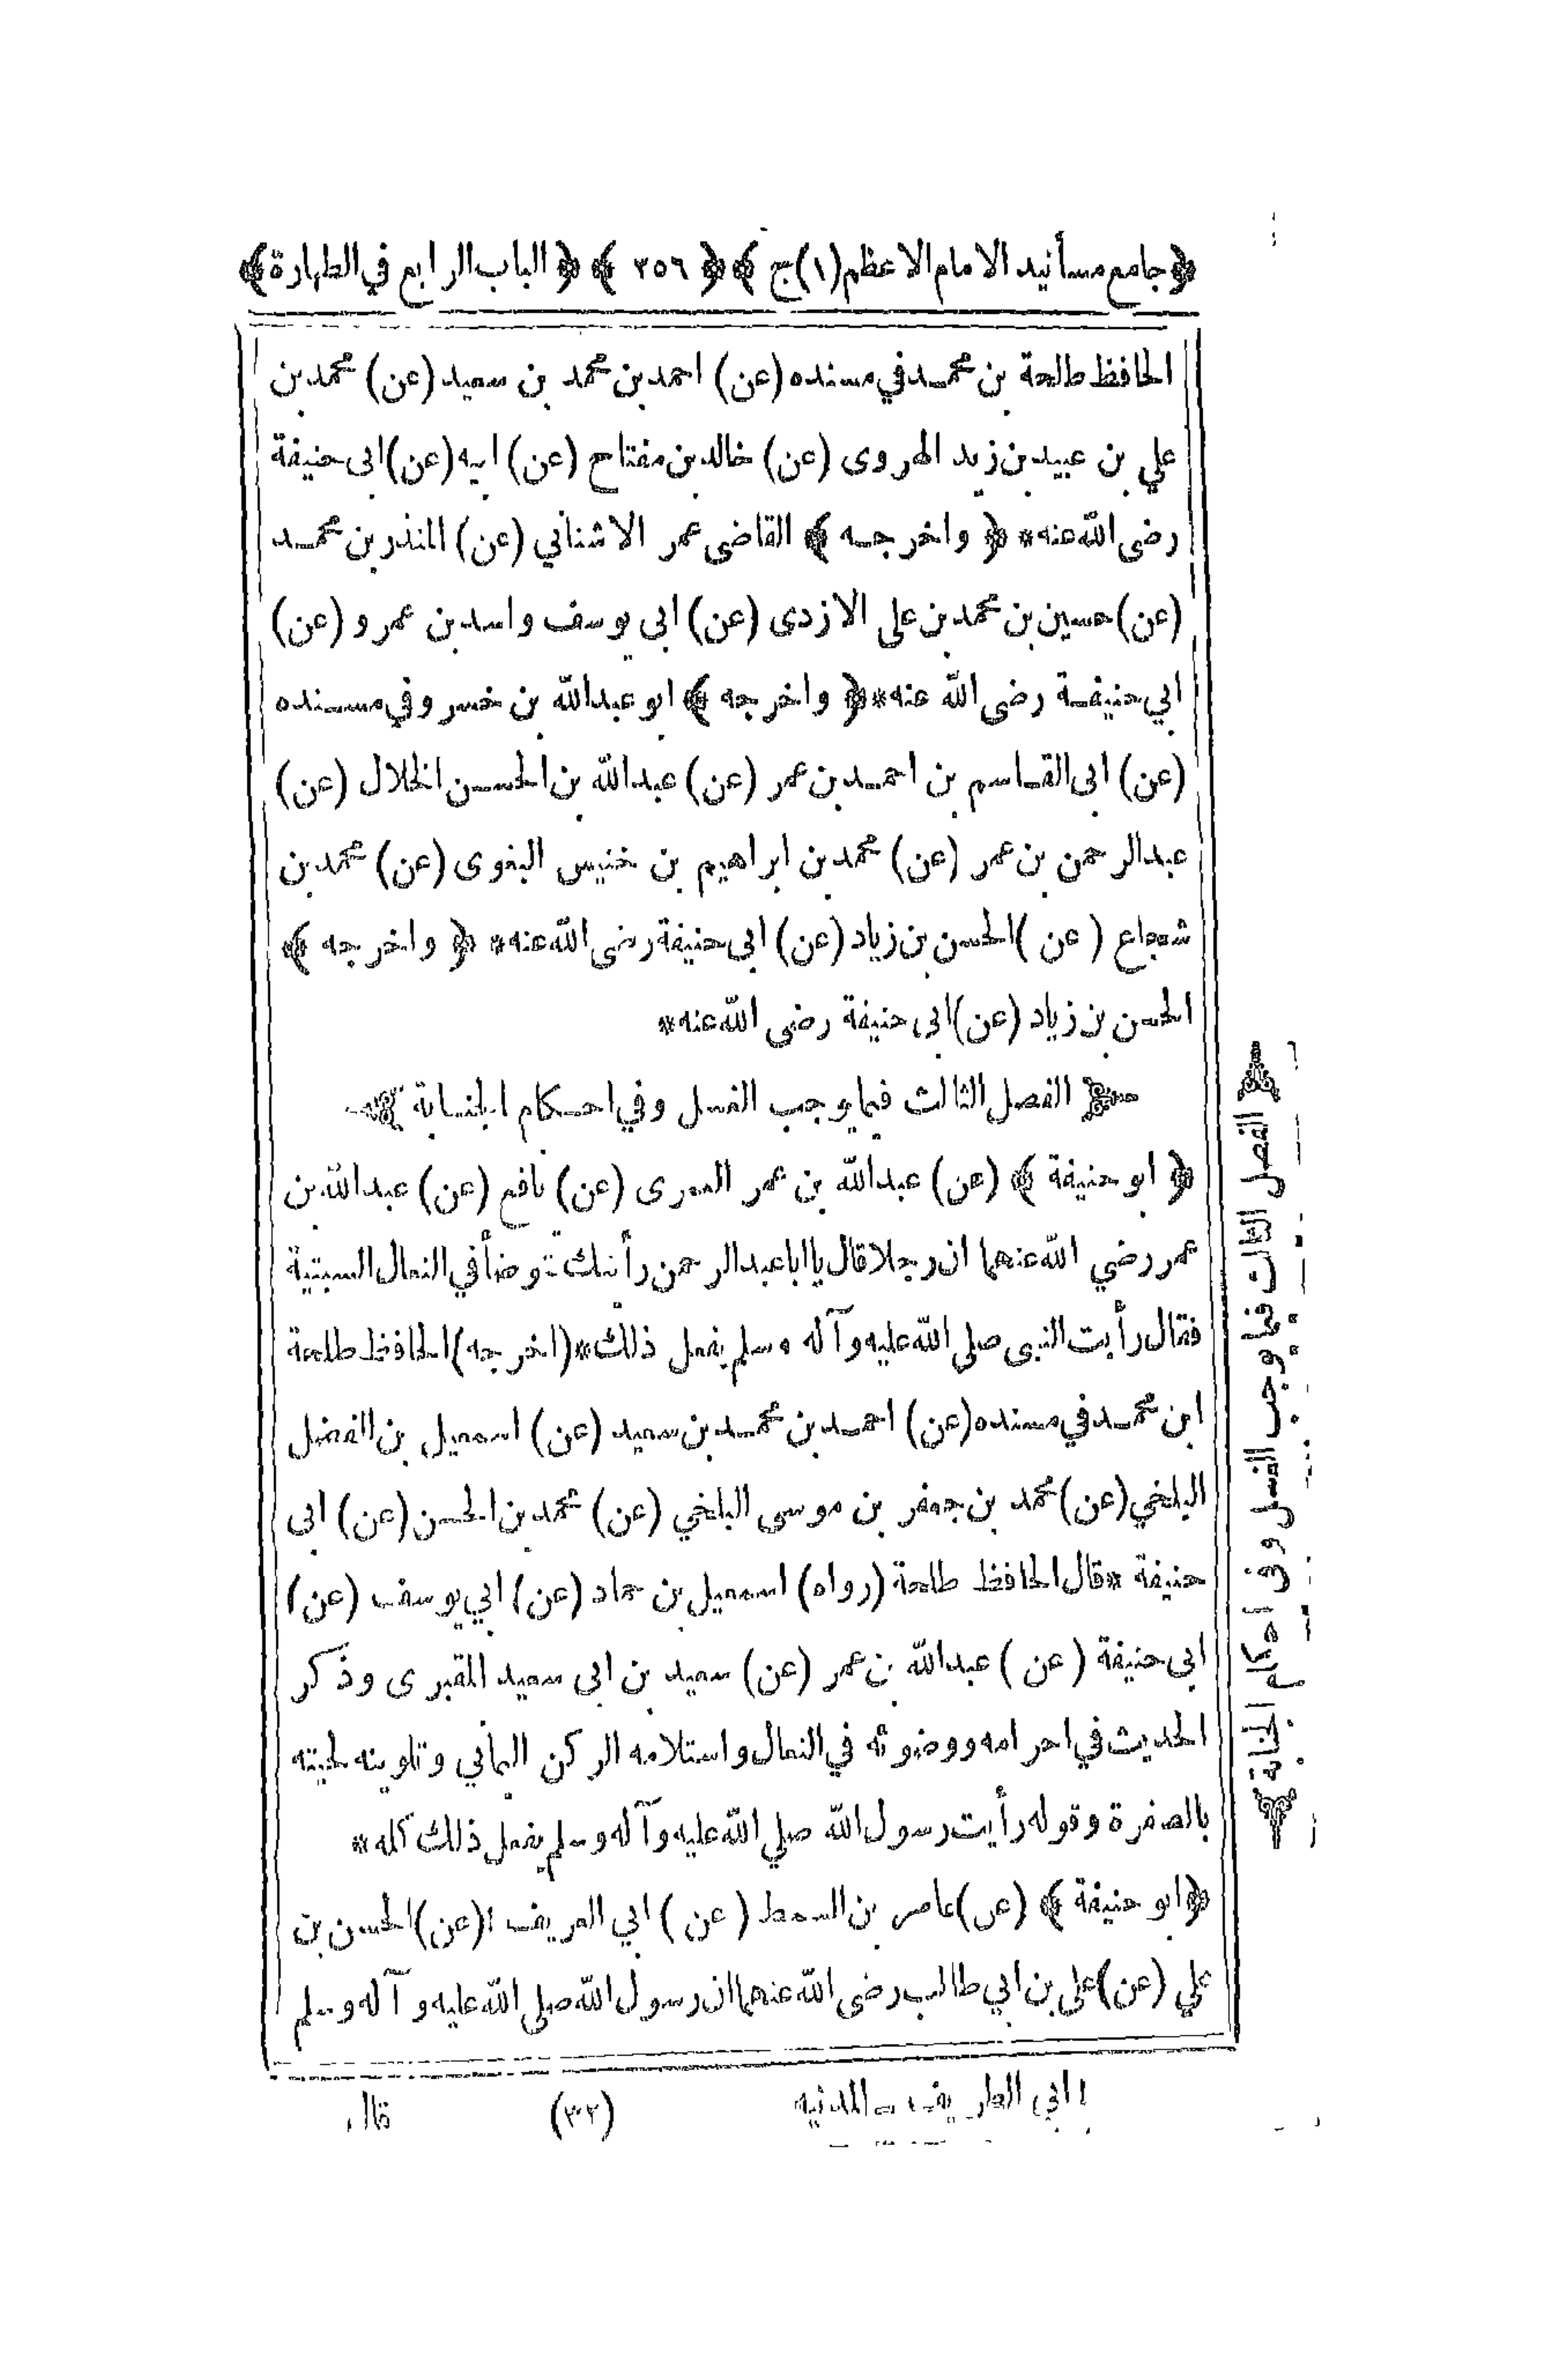 ﴿جامع مسانيد الامام الاعظم(١)ج﴾ ﴿٢٥٦﴾ ﴿الباب الرابع في الطهارة﴾
الحافظ طلحة بن محمد في مسنده (عن) احمد بن محمد بن سعيد (عن) محمد بن
علي بن عبيد بن زيد الهروى (عن) خالد بن مفتاح (عن) ابيه (عن) ابى حنيفة
رضى الله عنه* ﴿واخرجه﴾ القاضى عمر الاشناني (عن) المنذر بن محمد
(عن) حسين بن محمد بن على الازدى (عن) ابي يوسف واسد بن عمرو (عن)
ابي حنيفة رضى الله عنه* ﴿واخرجه﴾ ابو عبدالله بن خسرو في مسنده
(عن) ابى القاسم بن احمد بن عمر (عن) عبدالله بن الحسن الخلال (عن)
عبدالرحمن بن عمر (عن) محمد بن ابراهيم بن خنيس البغوى (عن) محمد بن
شجاع (عن) الحسن بن زياد (عن) ابى حنيفة رضى الله عنه* ﴿واخرجه﴾
الحسن بن زياد (عن) ابى حنيفة رضى الله عنه*
الفصل الثالث فيما يوجب الغسل وفي احكام الجنابة
﴿ابو حنيفة﴾ (عن) عبدالله بن عمر العمرى (عن) نافع (عن) عبدالله بن
عمر رضي الله عنهما ان رجلا قال يا ابا عبدالرحمن رأيتك توضأ في النعال السبتية
فقال رأيت النبى صلى الله عليه وآله وسلم يفعل ذلك* (اخرجه) الحافظ طلحة
ابن محمد في مسنده (عن) احمد بن محمد بن سعيد (عن) اسمعيل بن الفضل
البلخي (عن) محمد بن جعفر بن موسى البلخي (عن) محمد بن الحسن (عن) ابى
حنيفة *قال الحافظ طلحة (رواه) اسمعيل بن حماد (عن) ابي يوسف (عن)
ابى حنيفة (عن) عبدالله بن عمر (عن) سعيد بن ابى سعيد المقبرى وذكر
الحديث في احرامه ووضوئه في النعال واستلامه الركن اليماني وتلوينه لحيته
بالصفرة وقوله رأيت رسول الله صلي الله عليه وآله وسلم يفعل ذلك كله*
﴿ابو حنيفة﴾ (عن) عامر بن السمط (عن) ابي العريف ١ (عن) الحسن بن
علي (عن) على بن ابي طالب رضى الله عنهما ان رسول الله صلى الله عليه وآله وسلم
١ ابي الطريف - المدنيه
(٣٢)
قال
الفصل الثالث فيما يوجب الغسل وفى احكام الجنابة